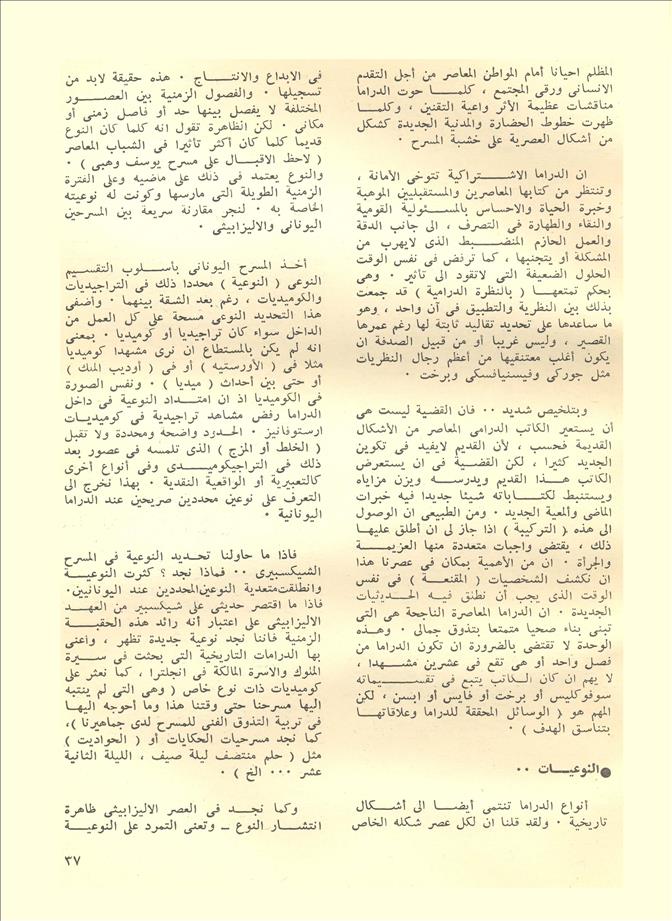 المظلم احيانا أمام المواطن المعاصر من أجل التقدم
الانسانى ورقى المجتمع ، كلمـــا حوت الدراما
مناقشات عظيمة الأثر واعية التقنين ، وكلمـا
ظهرت خطوط الحضارة والمدنية الجديدة كشكل
من أشكال العصرية على خشبة المسرح ٠
ان الدراما الاشــتراكية تتوخى الأمانة ،
وتنتظر من كتابها المعاصرين والمستقبليين الموهبة
وخبرة الحياة والاحساس بالمســئولية القومية
والنقاء والطهارة فى التصرف ، الى جانب الدقة
والعمل الحازم المنضــبط الذى لايهرب من
المشكلة أو يتجنبها ، كما ترفض فى نفس الوقت
الحلول الضعيفة التى لاتقود الى تأثير ٠ وهى
بحكم تمتعهـــا ( بالنظرة الدرامية ) قد جمعت
بذلك بين النظرية والتطبيق فى آن واحد ، وهو
ما ساعدها على تحديد تقاليد ثابتة لها رغم عمرها
القصير ، وليس غريبا أو من قبيل الصدفة ان
يكون أغلب معتنقيها من أعظم رجال النظريات
مثل جوركى وفيسنيافسكى وبرخت ٠
وبتلخيص شديد ٠٠ فان القضية ليست هى
أن يستعير الكاتب الدرامى المعاصر من الأشكال
القديمة فحسب ، لأن القديم لايفيد فى تكوين
الجديد كثيرا ، لكن القضـية فى ان يستعرض
الكاتب هـــذا القديم ويدرســـه ويزن مزاياه
ويستنبط لكتـــاباته شيئا جديدا فيه خبرات
الماضى وألمعية الجديد ٠ ومن الطبيعى ان الوصول
الى هذه ( التركيبة ) اذا جاز لى ان أطلق عليهـا
ذلك ، يقتضى واجبات متعددة منها العزيمـــة
والجرأة ٠ ان من الأهمية بمكان فى عصرنا هذا
ان نكشف الشخصيات ( المقنعـــة ) فى نفس
الوقت الذى يجب أن نطلق فيـه الحـديثيات
الجديدة ٠ ان الدراما المعاصرة الناجحة هى التى
تبنى بناء صحيا متمتعا بتذوق جمالى ٠ وهـــذه
الوحدة لا تقتضى بالضرورة ان تكون الدراما من
فصل واحد أو هى تقع فى عشرين مشـهدا ،
لا يهم ان كان الكاتب يتبع فى تقســـيماته
سوفوكليس أو برخت أو فايس أو ابسن ، لكن
المهم هو ( الوسائل المحققة للدراما وعلاقاتهـا
بتناسق الهدف ) ٠
● النوعيـــات ٠٠
أنواع الدراما تنتمى أيضـا الى أشـكال
تاريخية ٠ ولقد قلنا ان لكل عصر شكله الخاص
فى الابداع والانتــاج ٠ هذه حقيقة لابد من
تسجيلها ٠ والفصول الزمنية بين العصـــور
المختلفة لا يفصل بينها حد أو فاصل زمنى أو
مكانى ٠ لكن الظاهرة تقول انه كلما كان النوع
قديما كلما كان أكثر تأثيرا فى الشباب المعاصر
( لاحظ الاقبــال على مسرح يوسف وهبى ) ٠
والنوع يعتمد فى ذلك على ماضيه وعلى الفترة
الزمنية الطويلة التى مارسها وكونت له نوعيته
الخاصة به ٠ لنجر مقارنة سريعة بين المسرحين
اليونانى والاليزابيثى ٠
أخــذ المسرح اليونانى بأســلوب التقسـيم
النوعى ( النوعية ) محددا ذلك فى التراجيديات
والكوميديات ، رغم بعد الشقة بينهما ٠ وأضفى
هذا التحديد النوعى مسحة على كل العمل من
الداخل سواء كان تراجيديا أو كوميديا ٠ بمعنى
انه لم يكن بالمستطاع ان نرى مشهدا كوميديا
مثلا فى ( الأورستيه ) أو فى ( أوديب الملك )
أو حتى بين أحداث ( ميديا ) ٠ ونفس الصورة
فى الكوميديا اذ ان امتــداد النوعية فى داخل
الدراما رفض مشاهد تراجيدية فى كوميديـات
ارستوفانيز ٠ الحـدود واضحة ومحددة ولا تقبل
( الخلط أو المزج ) الذى تلمسه فى عصور بعد
ذلك فى التراجيكوميـــدى وفى أنواع أخرى
كالتعبيرية أو الواقعية النقدية ٠ بهذا نخرج الى
التعرف على نوعين محددين صريحين عند الدراما
اليونانية ٠
فاذا ما حاولنا تحديد النوعية فى المسرح
الشيكسبيرى ٠٠ فماذا نجد ؟ كثرت النوعيــة
وانطلقت متعدية النوعين المحددين عند اليونانيين٠
فاذا ما اقتصر حديثى على شيكسبير من العهـد
الاليزابيثى على اعتبار أنه رائد هذه الحقبـــة
الزمنية فاننا نجد نوعية جديدة تظهر ، وأعنى
بها الدرامات التاريخية التى بحثت فى ســيرة
الملوك والاسرة المالكة فى انجلترا ، كما نعثر على
كوميديات ذات نوع خاص ( وهى التى لم ينتبه
اليها مسرحنا حتى وقتنا هذا وما أحوجه اليهـا
فى تربية التذوق الفنى للمسرح لدى جماهيرنا )،
كما نجد مسرحيات الحكايات أو ( الحواديت )
مثل ( حلم منتصف ليلة صيف ، الليلة الثانية
عشر ٠٠٠ الخ ) ٠
وكما نجــد فى العصر الاليزابيثى ظاهرة
انتشــار النوع ــ وتعنى التمرد على النوعيــة
٣٧